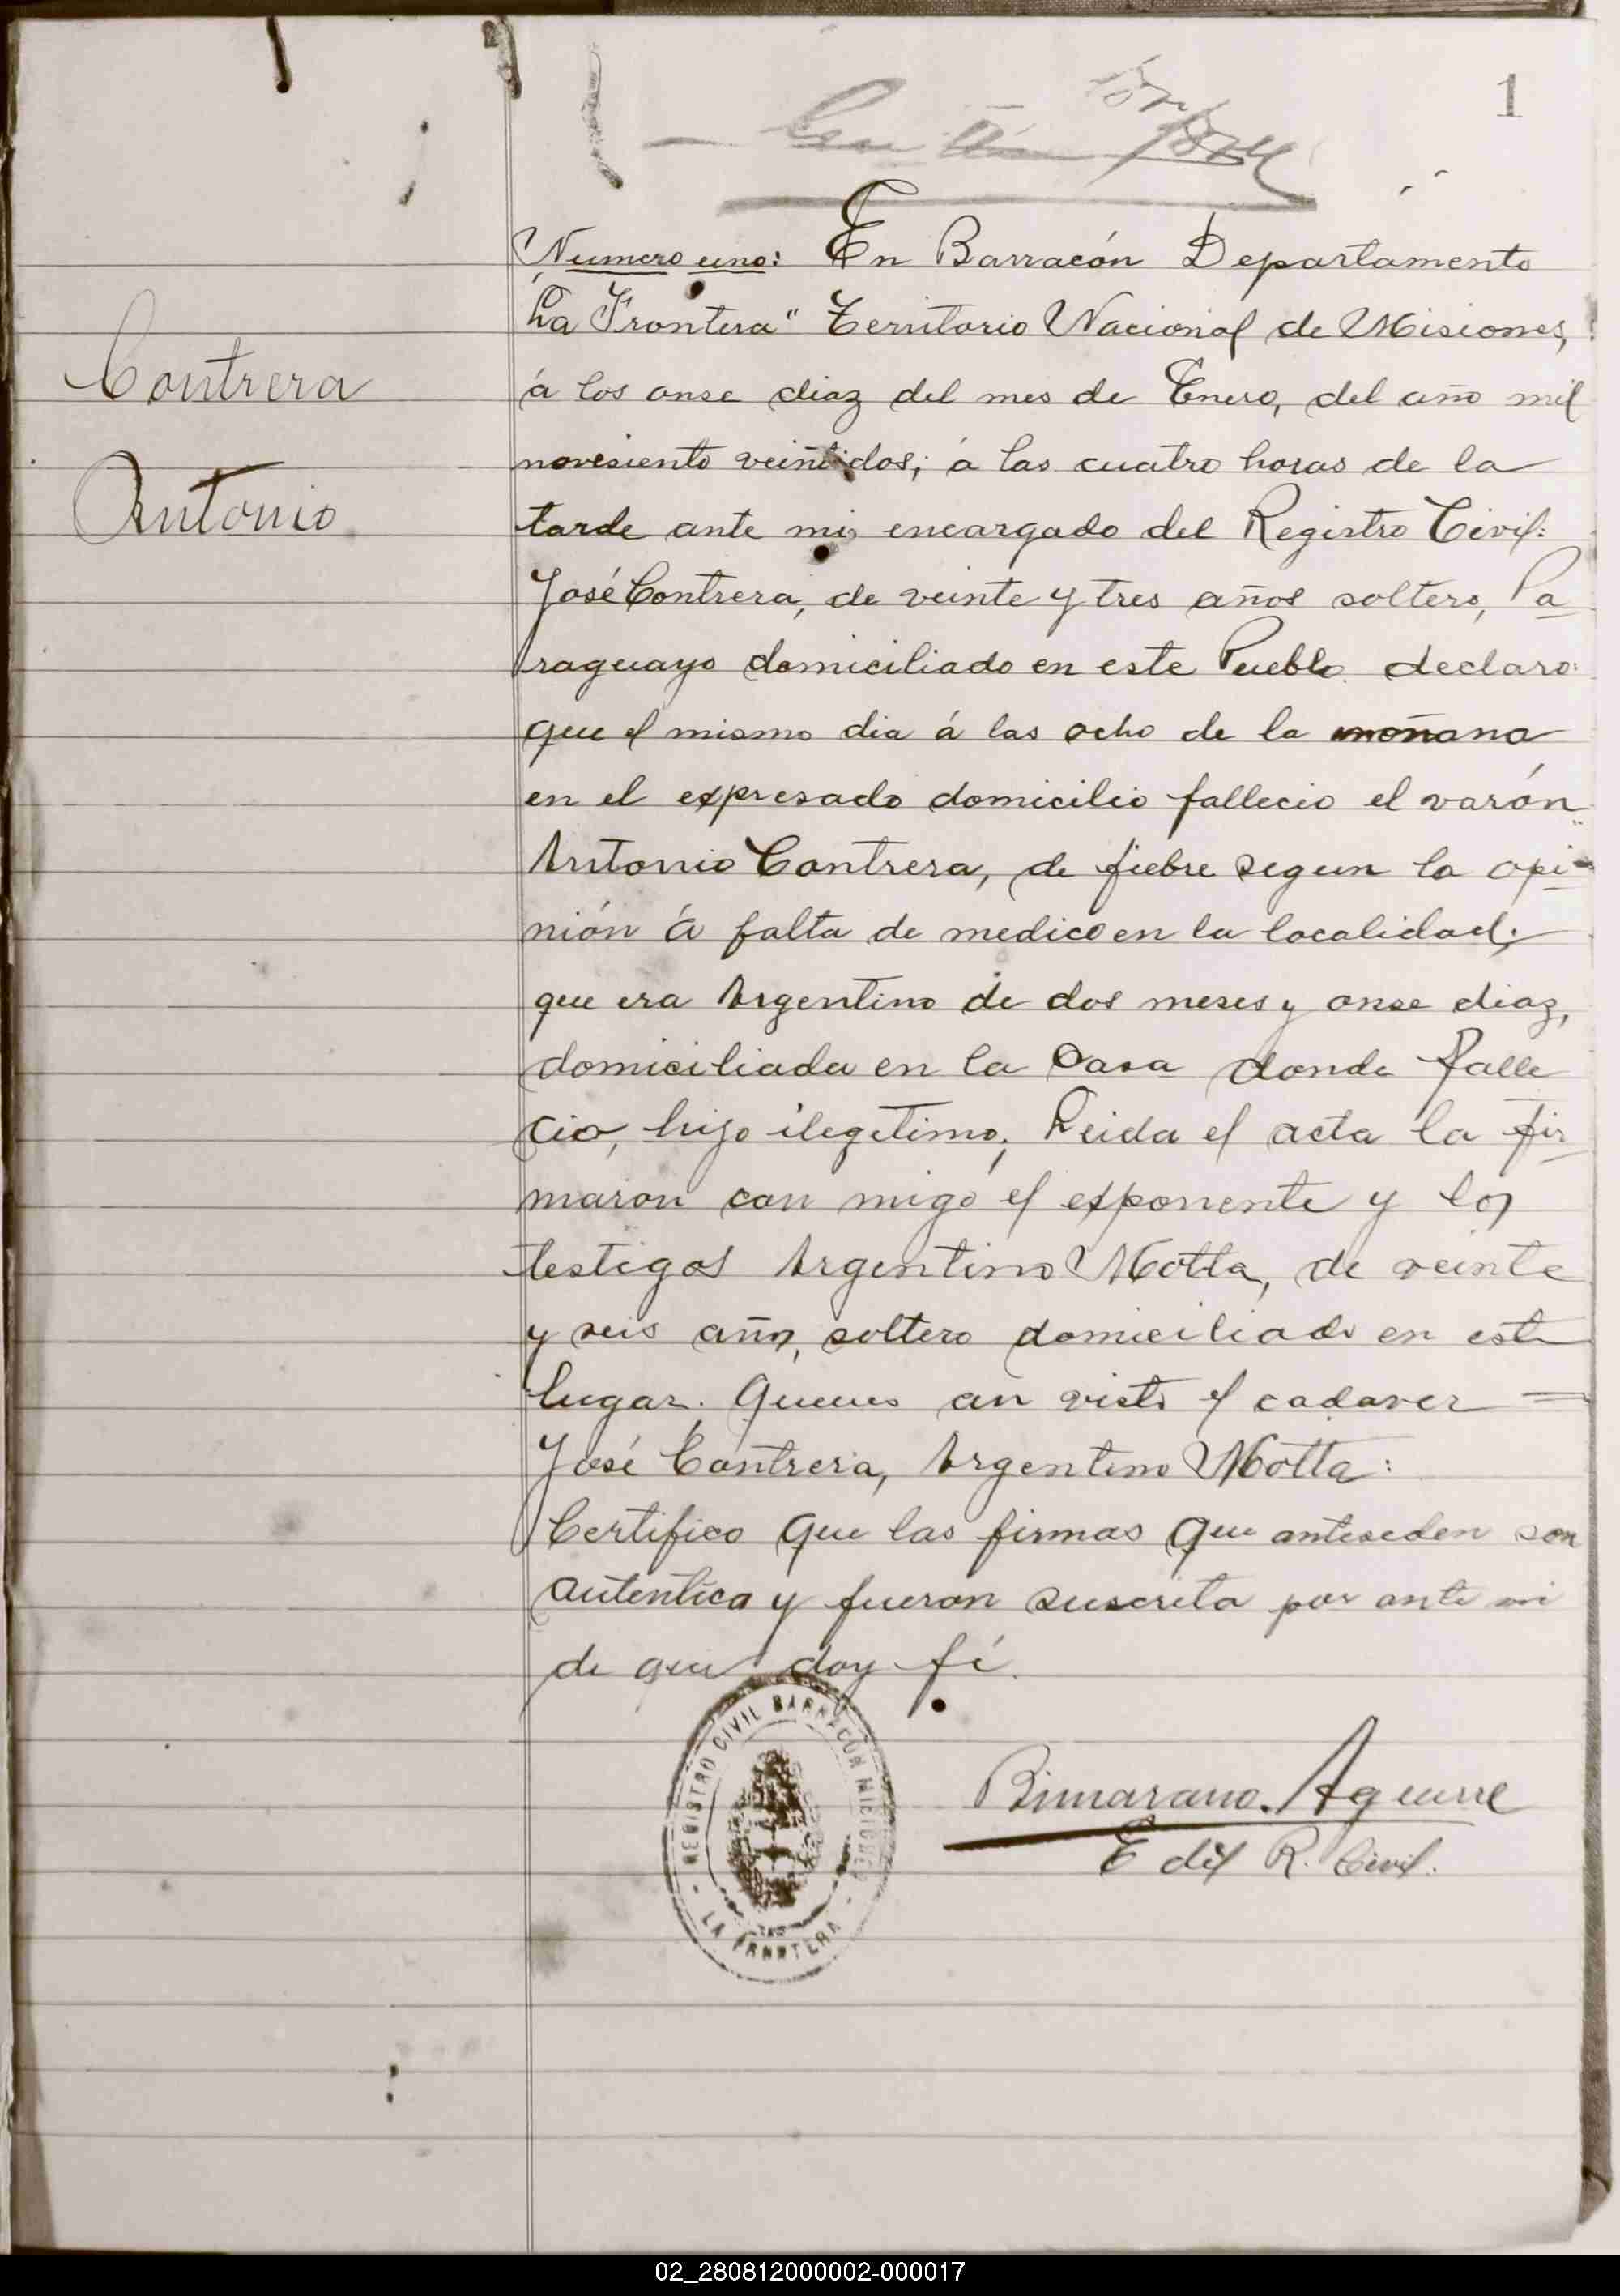 1
Contrera
Antonio
Numero uno: En Barracón Departamento
"La Frontera" Territorio Nacional de Misiones,
á los onse diaz del mes de Enero, del año mil
novesiento veintidos; á las cuatro horas de la
tarde ante mi, encargado del Registro Civil:
José Contrera, de veinte y tres años soltero, Pa
raguayo domiciliado en este Pueblo declaro:
que el mismo dia á las ocho de la mañana
en el expresado domicilio fallecio el varón
Antonio Contrera, de fiebre segun la opi-
nión á falta de medico en la localidad;
que era Argentino de dos meses y onse diaz,
domiciliada en la Casa donde falle
cio, hijo ilegetimo; Leida el acta la fir
maron con migo el exponente y los
testigos Argentino Motta, de veinte
y seis años, soltero domiciliado en este
lugar. Quenes an visto el cadaver =
José Contrera, Argentino Motta:
Certifico que las firmas que anteseden son
autentica y fueron suscrita por ante mi
de que doy fé.
REGISTRO CIVIL BARRACÓN MICIONES
- LA FRONTERA -
Aguirre
E del R. Civil.
02_280812000002-000017